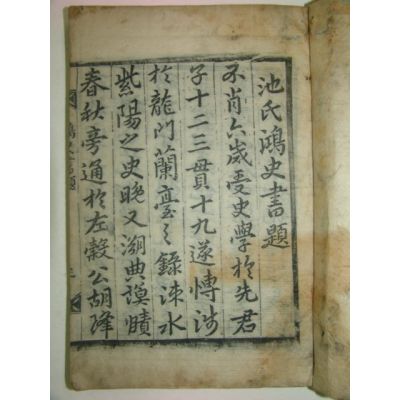 池氏鴻史書題
不肖六歲受史學於先君
子十二三貫十九遂博涉
於龍門蘭臺之錄涑水
紫陽之史晚又溯典謨賾
春秋旁通於左穀公胡降